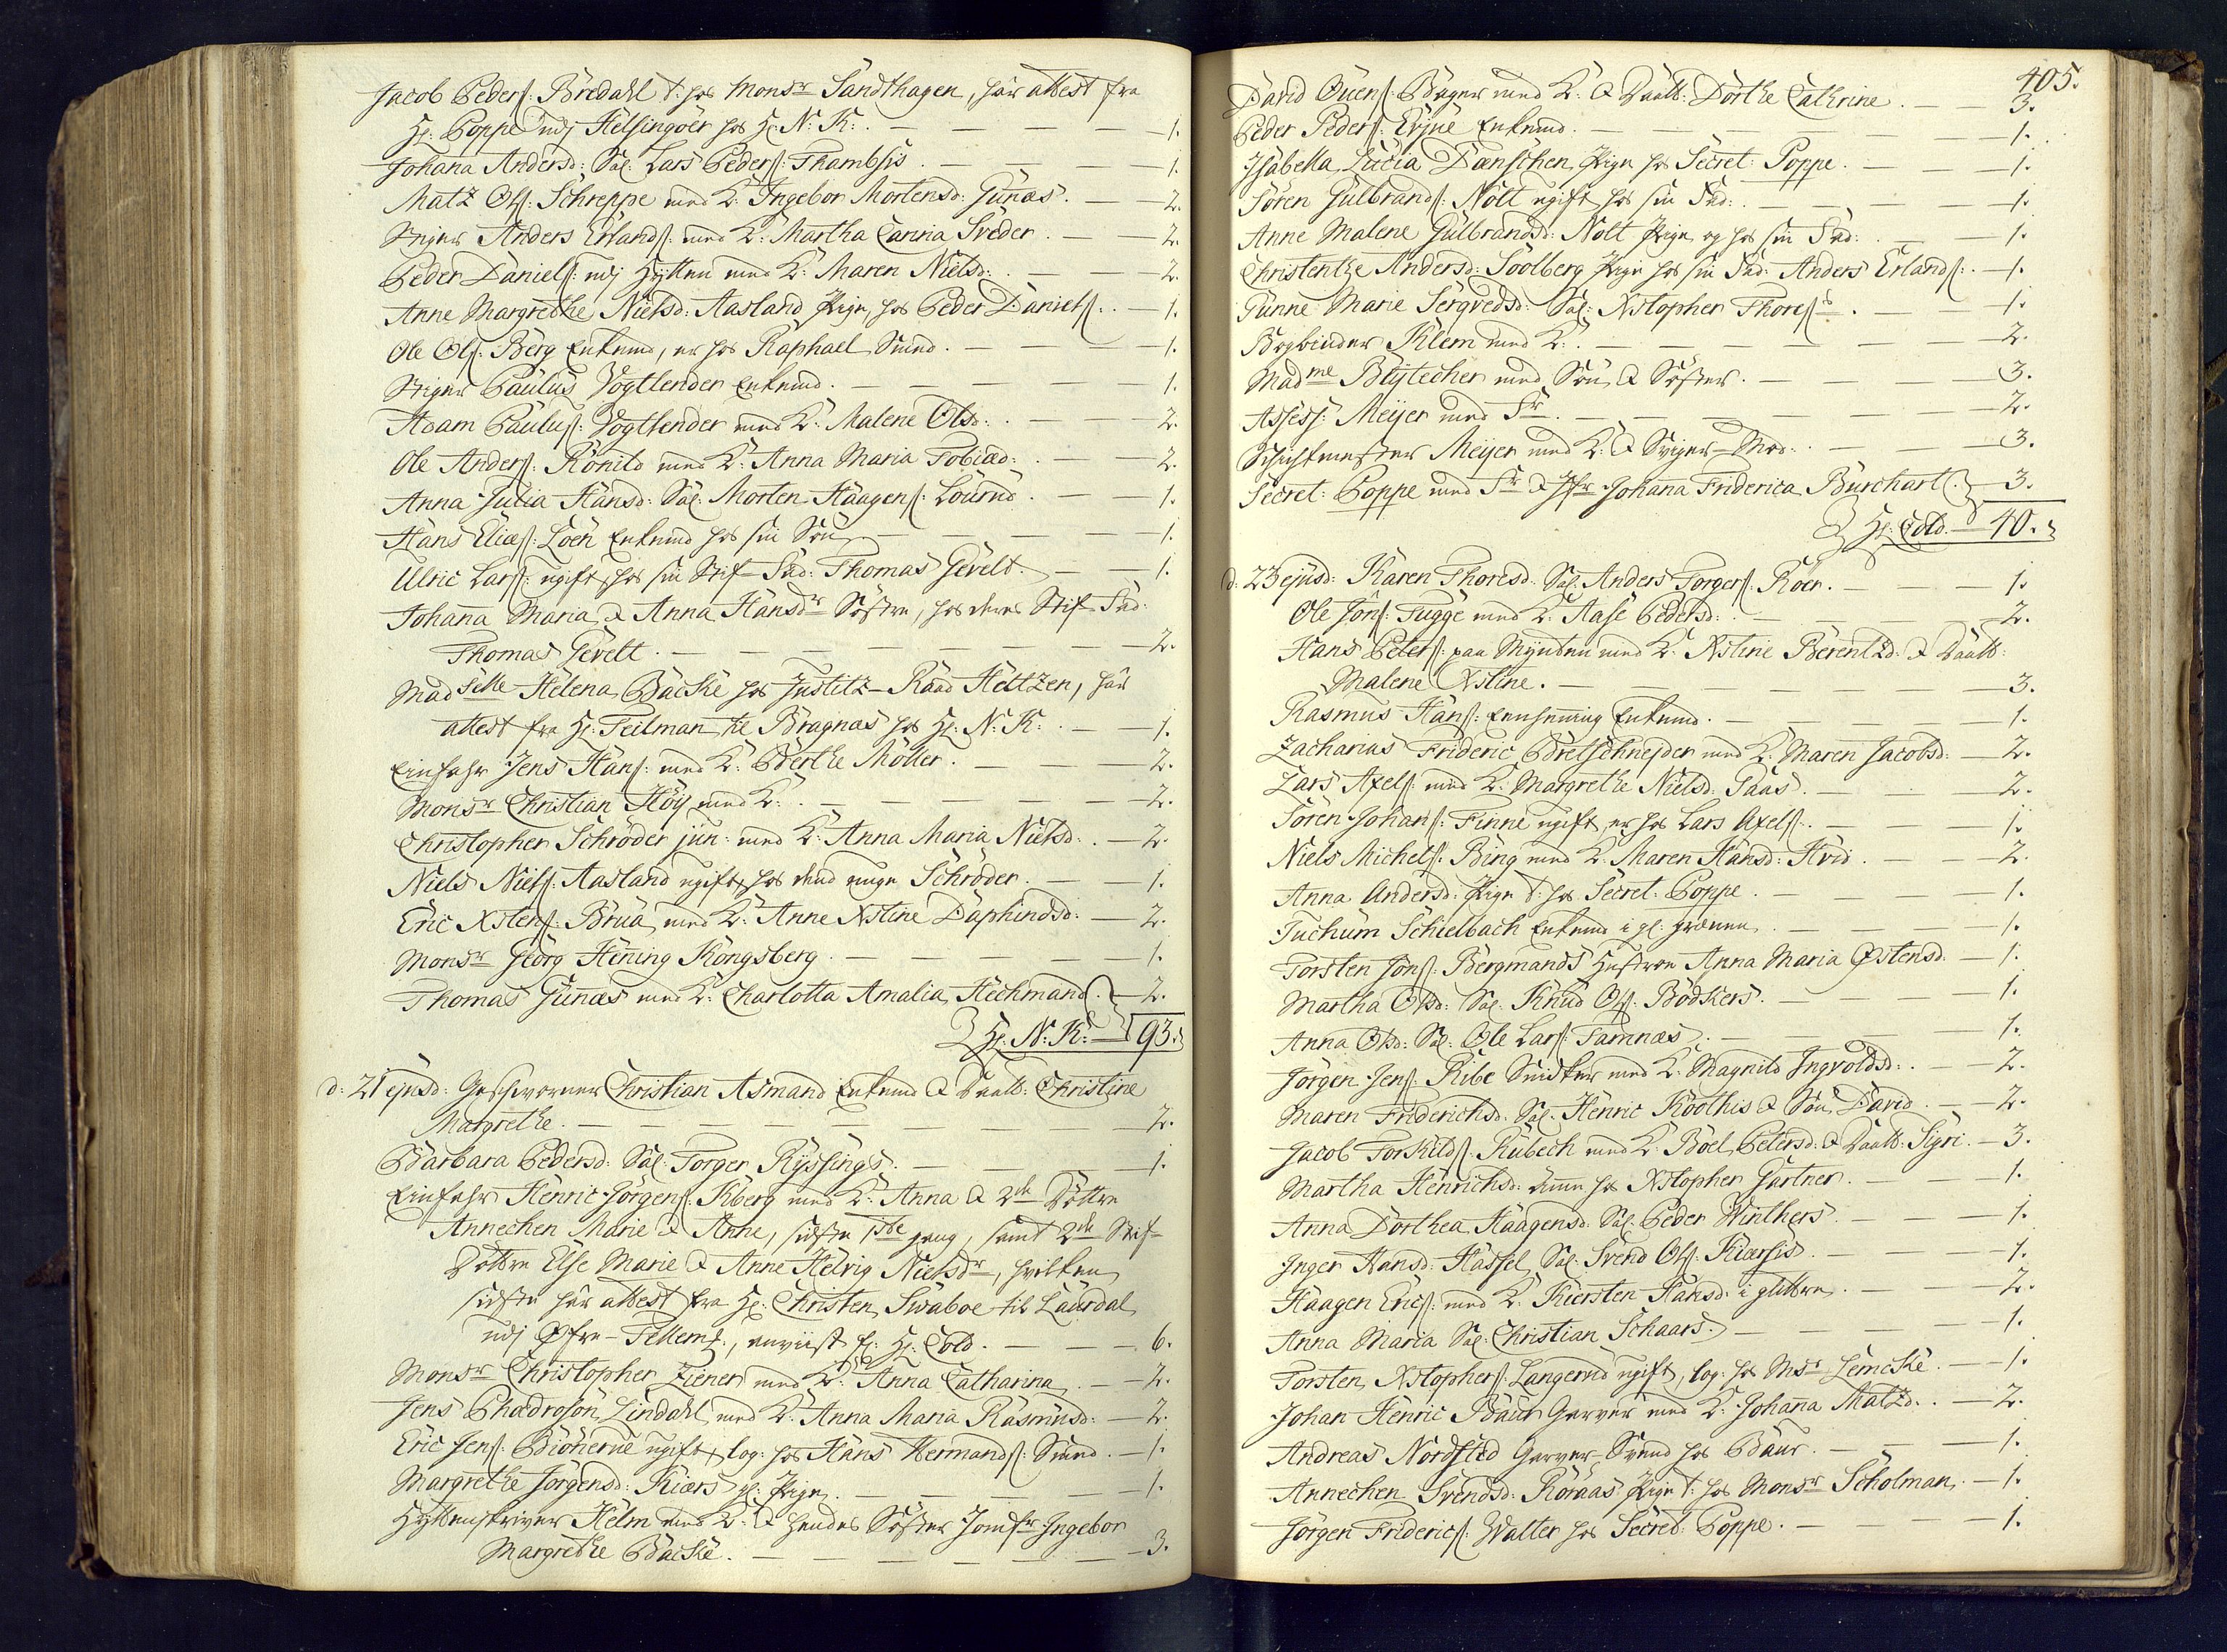 Jacob Peders: Bredahl t: hos Monsr Sandthagen, har attest fra
Hr: Poppe udj Helsingöer hos Hr: N: K: . — 1.
Johana Andersd: Sal: Lars Peders: Thambsis . — 1.
Matz Ols: Schreppe med K: Ingebor Mortensd: Gunæs. — 2.
Stiger Anders Erlands: med K: Martha Carina Sveder . — 2.
Peder Daniels: udj Hytten med K: Maren Nielsd: . — 2.
Anne Margrethe Nielsd: Aasland Pige, hos Peder Daniels: . — 1.
Ole Ols: Berg Enkmd, er hos Raphael Smed. — 1.
Stiger Paulus Vogtlender Enkmd. — 1.
Adam Paulus: Vogtlender med K: Malene Olsd: . — 2.
Ole Anders: Rönild med K: Anna Maria Tobiæd: . — 2.
Anna Lucia Hansd: Sal: Morten Haagens: Lourud . — 1.
Hans Eliæs: Loen Enkmd hos sin Sön — 1.
Ulric Lars: ugift, hos sin Stif-Fad: Thomas Gevelt. — 1.
Johana Maria & Anna Hansdr Söstre, hos deres Stif-Fad:
Thomas Gevelt . — 2.
Madselle Helena Backe hos Justitz-Raad Heltzen, har
attest fra Hr: Teilman til Bragnæs hos Hr: N: K: . — 1.
Einfahr Jens Hans: med K: Berthe Möller . — 2.
Monsr Christian Höÿ med K: . — 2.
Christopher Schröder jun: med K: Anna Maria Nielsd: . — 2.
Niels Niels: Aasland ugift, hos dend unge Schröder. — 1.
Eric Xstens: Brua med K: Anne Xstine Daphindsd: — 2.
Monsr Georg Hening Kongsberg . — 1.
Thomas Gunæs med K: Charlotta Amalia Hechmand . — 2.
Hr: N: K: — 93.
d: 21 ejusd: Geschworner Christian Asmand Enkmd & Daatt: Christine
Margrethe . — 2.
Barbara Pedersd: Sal: Torger Ryssings . — 1.
Einfahr Henric Jörgens: Kberg med K: Anna & 2de Döttre
Annechen Marie & Anne, sidste 1ste gang, samt 2de Stif-
Döttre Else Marie & Anne Helvig Nielsdr, hvilken
sidste har attest fra Hr: Christen Swaboe til Laurdal
udj Øfre-Tellem:, anviist fr: Hr: Cold . — 6.
Monsr Christopher Ziener med K: Anna Catharina . — 2.
Jens Phædrosön Lindahl med K: Anna Maria Rasmusd: — 2.
Eric Jens: Biönerue ugift, log: hos Hans Hermands: Smed . — 1.
Margrethe Jörgensd: Kiærs gl: Pige . — 1.
Hyttenskriver Helm med K: & hendes Söster Jomfr Ingebor
Margrethe Backe . — 3.
405.
David Ouens: Bager med K: & Daatt: Dorthe Cathrine . — 3.
Peder Peders: Erjue Enkmd. — 1.
Isabella Lucia Danschen Pige hos Secret: Poppe . — 1.
Sören Gulbrands: Nolt ugift hos sin Fad: . — 1.
Anne Malene Gulbrandsd: Nolt Pige og hos sin Fad: . — 1.
Christentze Andersd: Soolberg Pige hos sin Fad: Anders Erlands: . — 1.
Gunne Marie Sergvedsd: Sal: Xstopher Thores: . — 1.
Bogbinder Klem med K: . — 2.
Madme Blÿtecher med Sön & Söster . — 3.
Assess: Meÿer med Fr . — 2.
Schichtmester Meÿer med K: & Sviger-Mod: . — 3.
Secret: Poppe med Fr & Jfr Johana Friderica Burchart . — 3.
Hr: Cold. — 40.
d: 23 ejusd: Karen Thoresd: Sal: Anders Torgers: Roen . — 1.
Ole Jons: Tugge med K: Aase Pedersd: . — 2.
Hans Peters: paa Mynten med K: Xstine Berentzd: & Daatt:
Malene Xstine . — 3.
Rasmus Hans: Eenhenning Enkmd . — 1.
Zacharias Frideric Bretschnejder med K: Maren Jacobsd: — 2.
Lars Axels: med K: Margrethe Nielsd: Paas . — 2.
Sören Johans: Finne ugift, er hos Lars Axels: . — 1.
Niels Michels: Bing med K: Maren Hansd: Hvid . — 2.
Anna Andersd: Pige t: hos Secret: Poppe . — 1.
Tuchum Schielbach Enkmd i gl: grænen . — 1.
Torsten Jons: Bergmands Hustroe Anna Maria Østensd: — 1.
Martha Olsd: Sal: Knud Ols: Bödkers . — 1.
Anna Olsd: Sal: Ole Lars: Tamnæs . — 1.
Jörgen Jens: Ribe Snidker med K: Magnild Ingvoldsd: . — 2.
Maren Friderichsd: Sal: Henric Koothis & Sön David . — 2.
Jacob Torkilds: Kubech med K: Boel Petersd: & Daatt: Sigri . — 3.
Martha Henrichsd: Amme hos Xstopher Gartner . — 1.
Anna Dorthea Haagensd: Sal: Peder Winthers . — 1.
Inger Hansd: Hassel Sal: Svend Ols: Kiærsis . — 1.
Haagen Erics: med K: Kiersten Hansd: i glittre . — 2.
Anna Maria Sal: Christian Schaars . — 1.
Torsten Xstophers: Langerud ugift, log: hos Msr Lemcke . — 1.
Johan Henric Baur Garver med K: Johana Matzd: . — 2.
Andreas Nordsted Garver-Svend hos Baur . — 1.
Annechen Svendsd: Röraas Pige t: hos Monsr Scholman . — 1.
Jörgen Friderics: Walter hos Secret: Poppe . — 1.